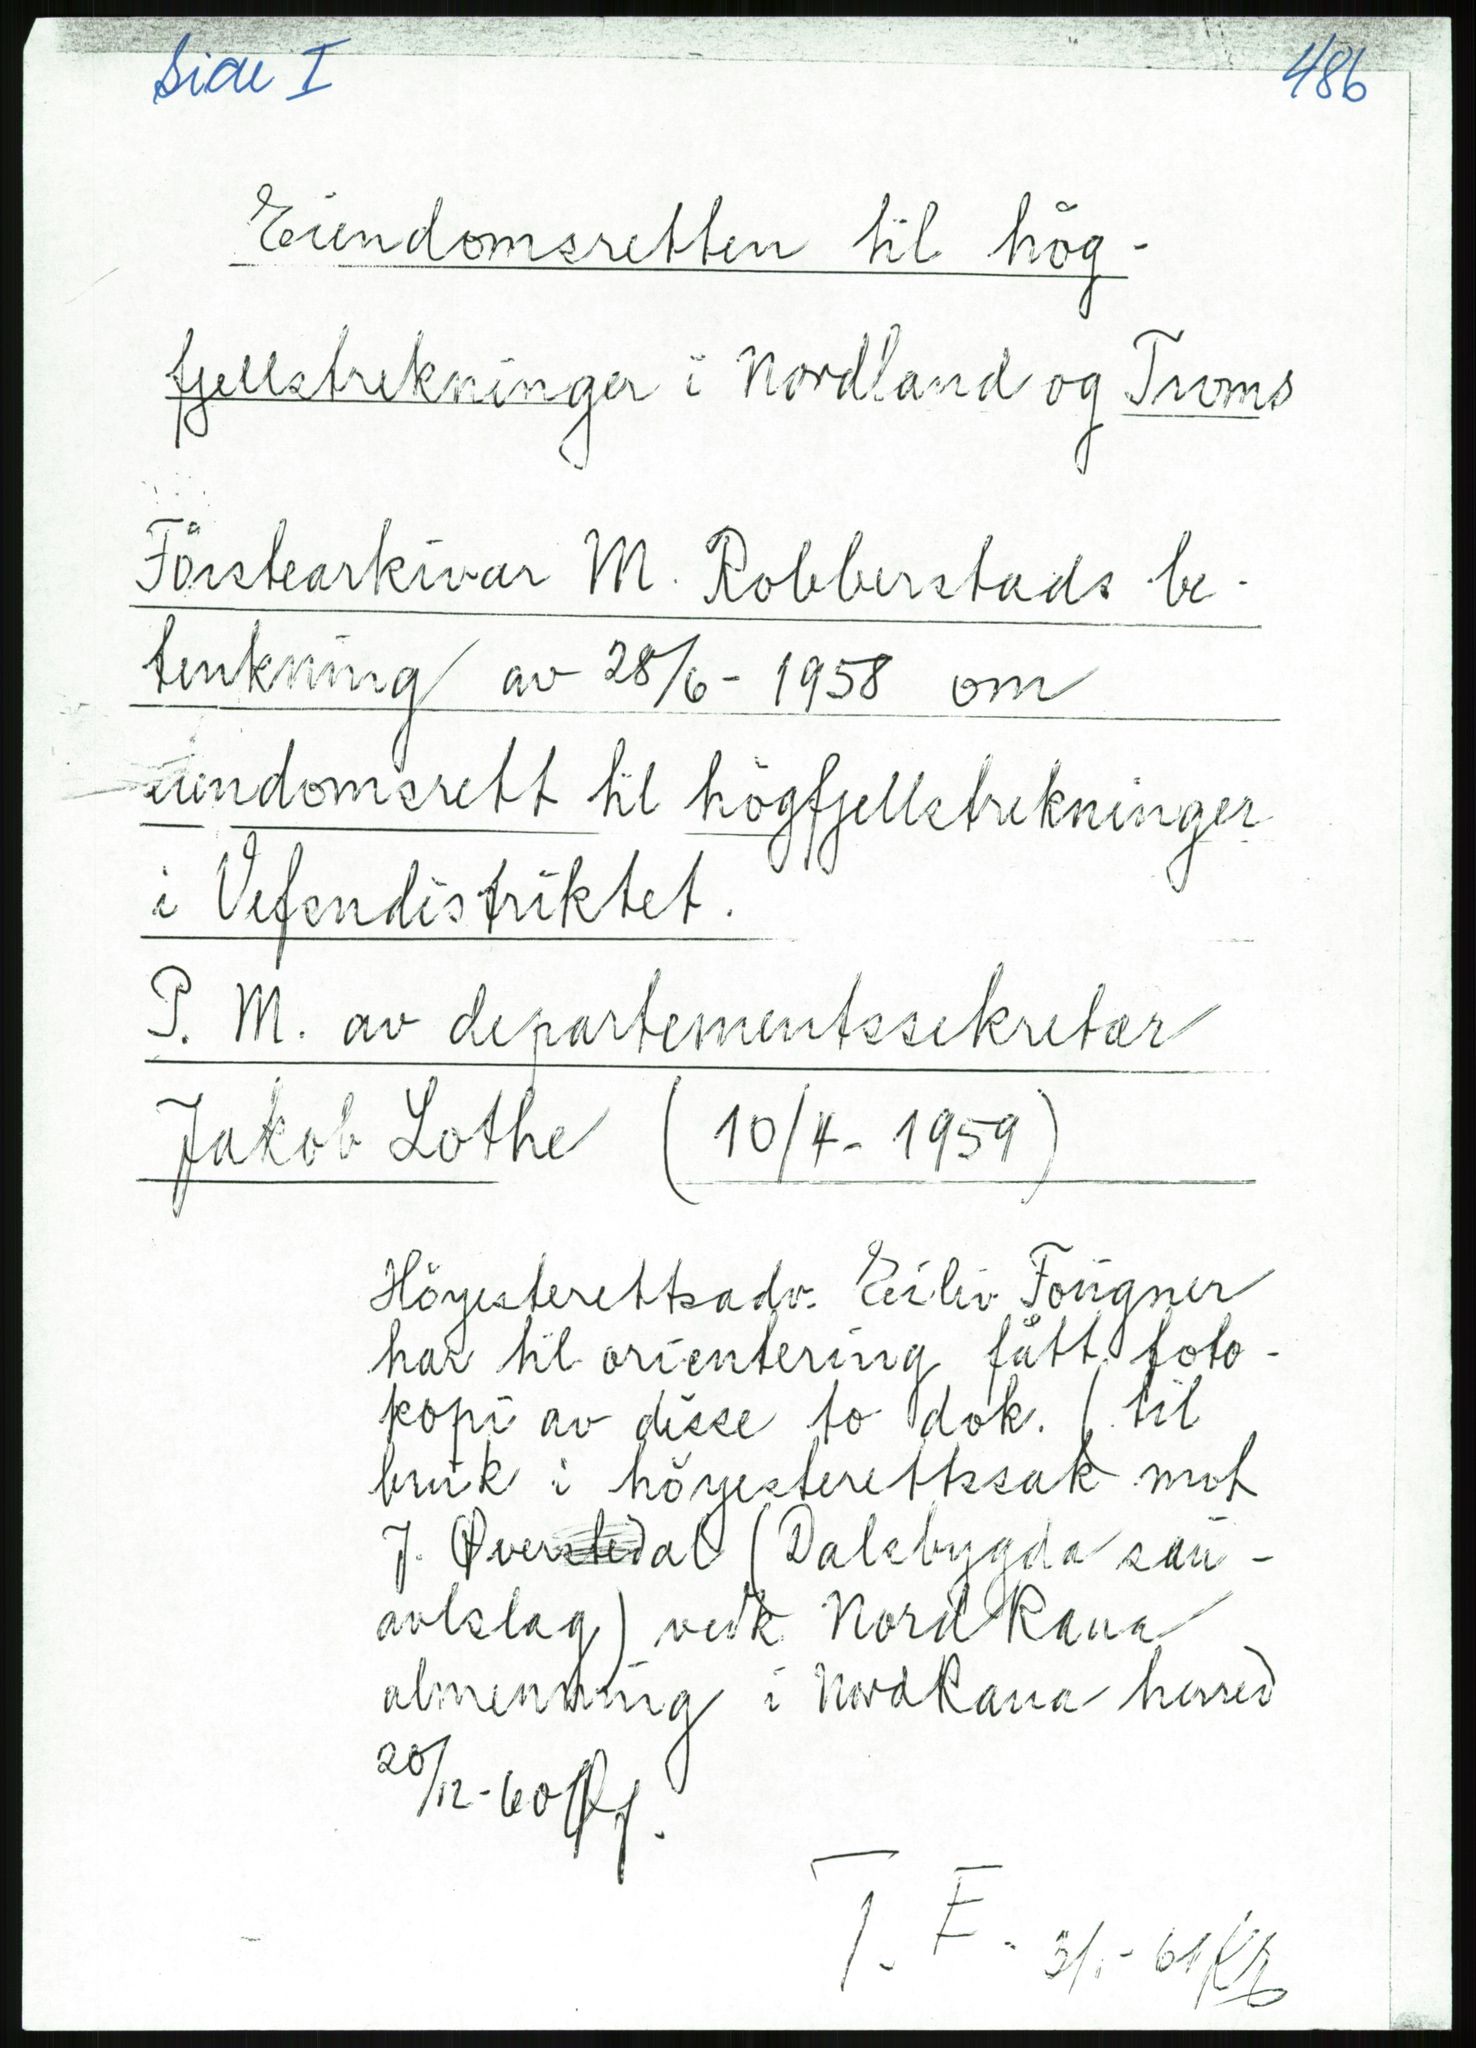 Side I
486
Eiendomsretten til hög-
fjellstrekninger i Nordland og Troms
Förstearkivar M. Robberstads be-
tenkning av 28/6-1958 om
eiendomsrett til högfjellstrekninger
i Vefsndistriktet.
P. M. av departementssekretær
Jakob Lothe (10/4-1959)
Höyesterettsadv. Eiliv Fougner
har til orientering fått foto-
kopi av disse to dok. (til
bruk i höyesterettssak mot
J. Øverstedal (Dalsbygda sau-
avlslag) vedk. Nord Rana
almenning i Nord Rana herred
20/12-60
T. F. 3/1-61